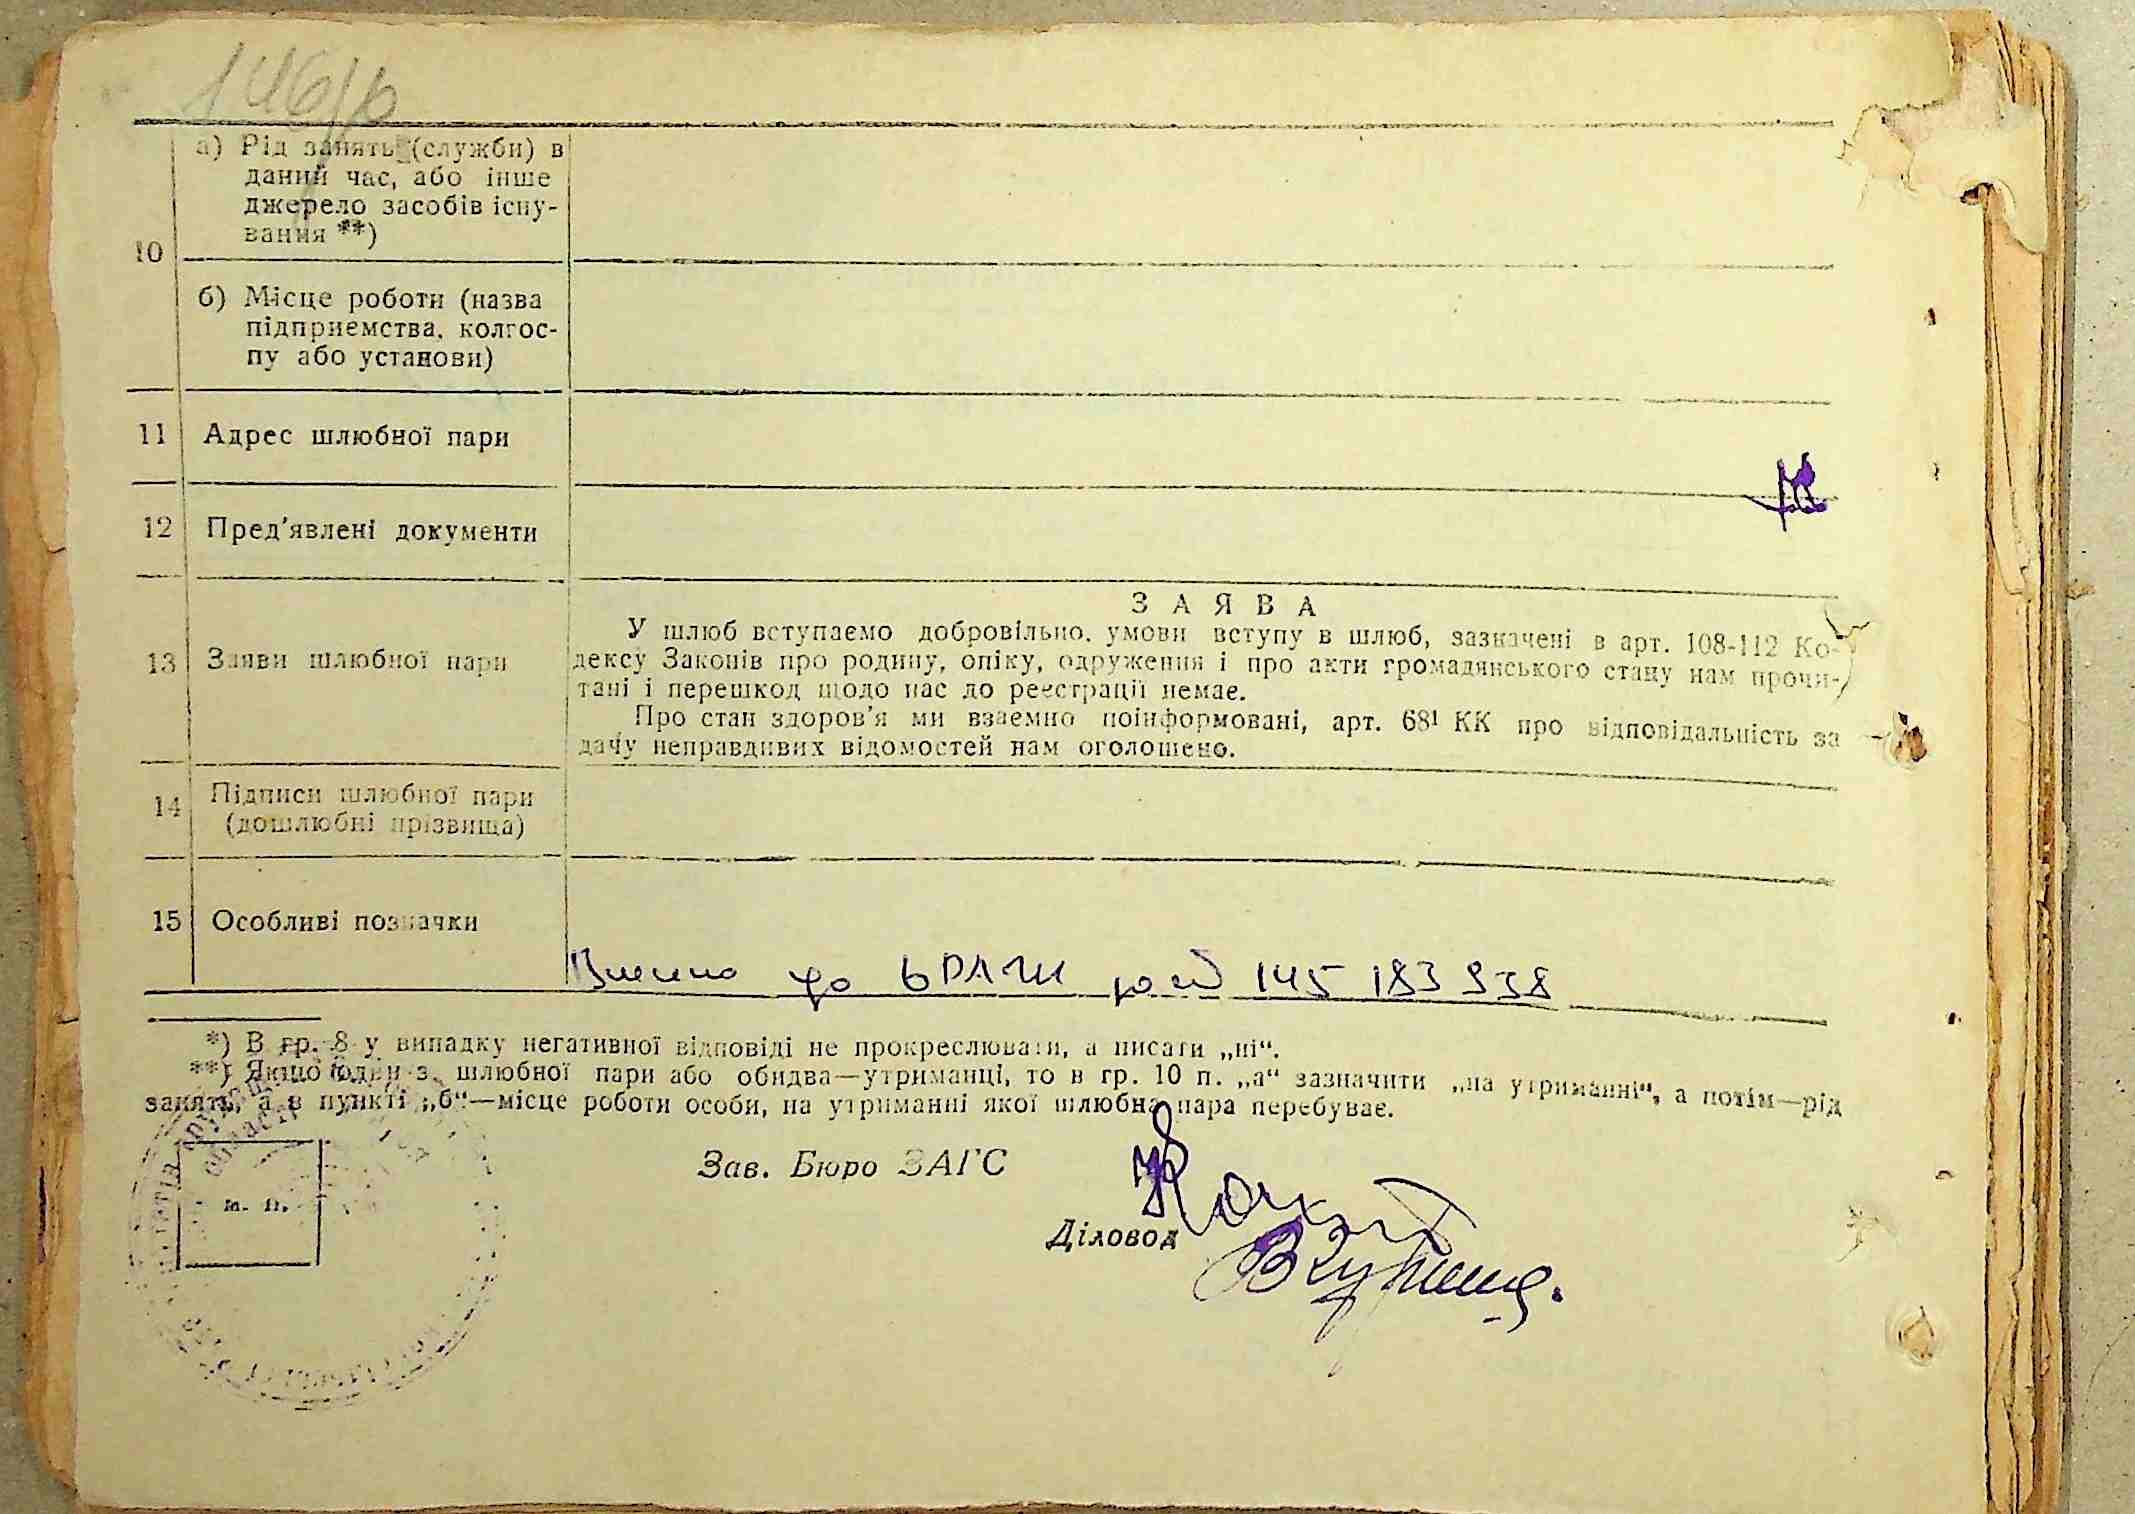 а) Рід занять (служби) в
даний час, або інше
джерело засобів існу-
вання **)
10
б) Місце роботи (назва
підприємства, колгос-
пу або установи)
11 Адрес шлюбної пари
12 Пред'явлені документи
ЗАЯВА
У шлюб вступаємо добровільно, умови вступу в шлюб, зазначені в арт. 108-112 Ко-
13 Заяви шлюбної пари
дексу Законів про родину, опіку, одруження і про акти громадянського стану нам прочи-
тані і перешкод щодо нас до реєстрації немає.
Про стан здоров'я ми взаємно поінформовані, арт. 68¹ КК про відповідальність за
дачу неправдивих відомостей нам оголошено.
14 Підписи шлюбної пари
(дошлюбні прізвища)
15 Особливі позначки
до 145 183 938
*) В гр. 8 у випадку негативної відповіді не прокреслювати, а писати „ні“.
**) Якщо один з шлюбної пари або обидва—утриманці, то в гр. 10 п. „а“ зазначити „на утриманні“, а потім—рід
занять, а в пункті „б“—місце роботи особи, на утриманні якої шлюбна пара перебуває.
Зав. Бюро ЗАГС
м. п.
Діловод